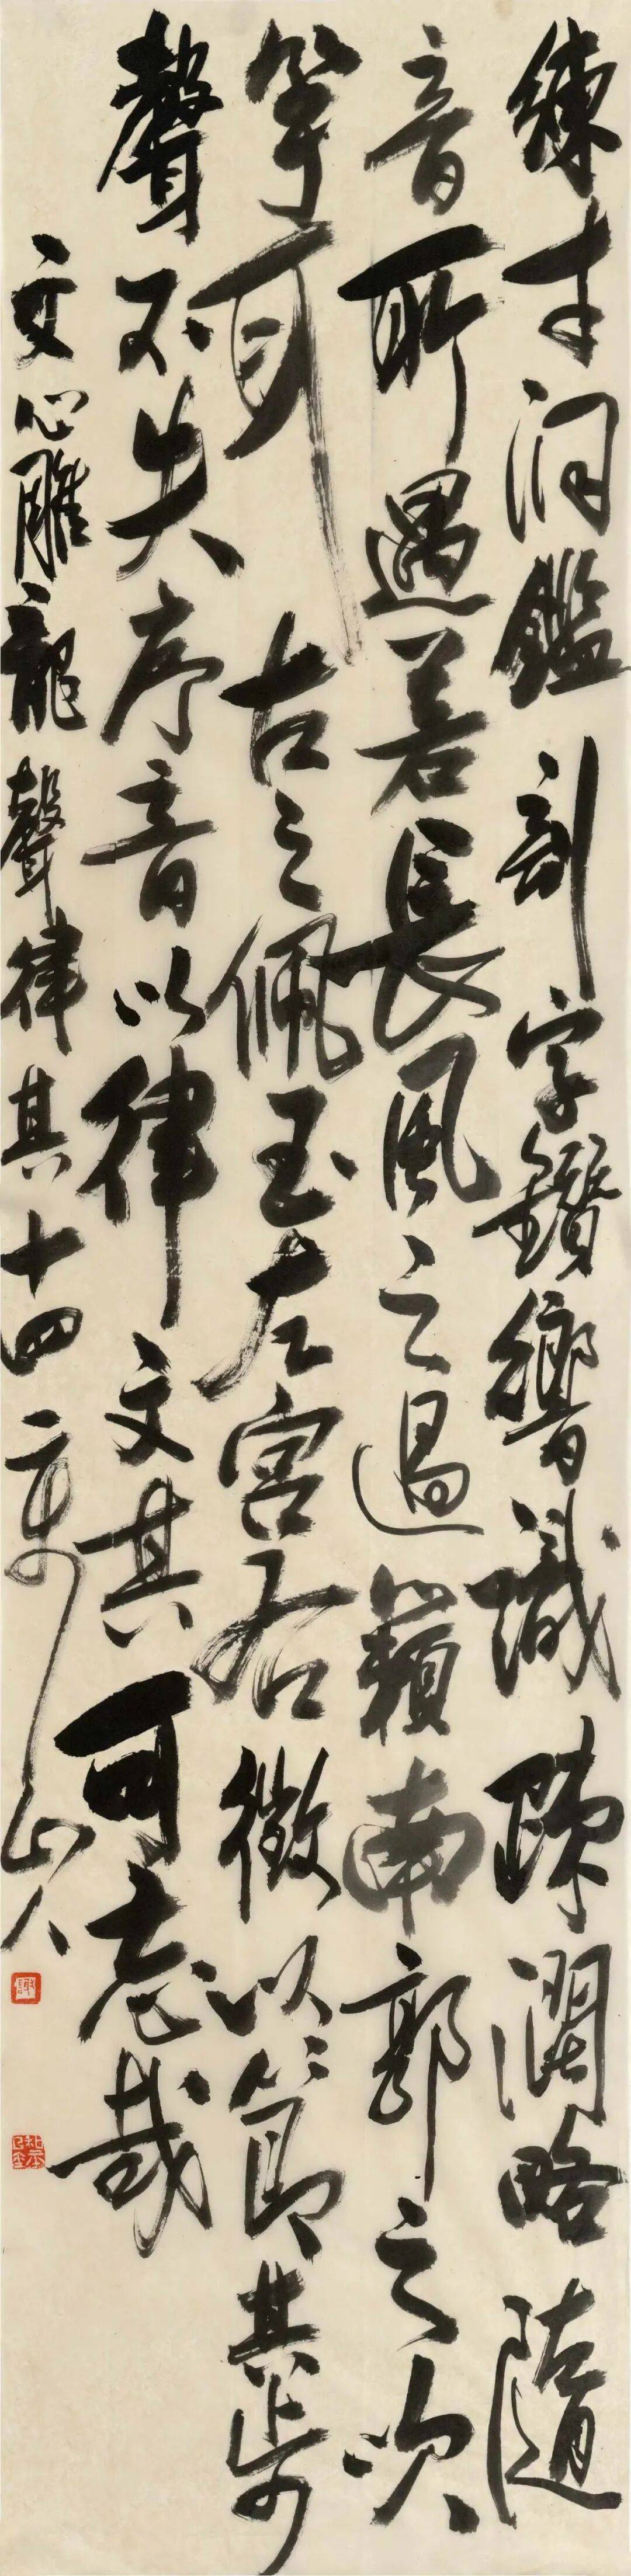 練才洞鑑剖字鑽響識疎闊略隨
音所遇若長風之過籟南郭之吹
竽耳古之佩玉左宮右徵以節其步
聲不失序音以律文其可忘哉
文心雕龍聲律其十四 山人